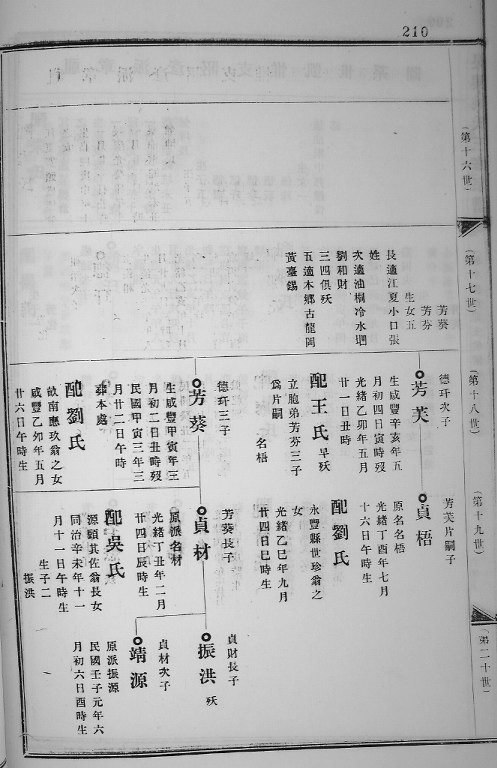 210
(第十六世)
(第十七世)
(第十八世)
(第十九世)
(第二十世)
芳葵
芳芬
生女五
長適江夏小口張
姓
次適油榈冷水𡇾
劉和財
三四俱殀
五適本鄉古龍岡
黃臺錫
德玕次子
芳芙
生咸豐辛亥年五
月初四日寅時歿
光緒乙卯年五月
廿一日丑時
配王氏早殀
立胞弟芳芬三子
為片嗣
名梧
芳芙片嗣子
貞梧
原名名梧
光緒丁酉年七月
十六日午時生
配劉氏
永豐縣世珍翁之
女
光緒乙巳年九月
廿四日巳時生
德玕三子
芳葵
生咸豐甲寅年三
月初二日丑時歿
民國甲寅三年三
月廿二日午時
葬本處
配劉氏
畝南應玖翁之女
咸豐乙卯年五月
廿六日午時生
芳葵長子
貞材
原派名材
光緒丁丑年二月
廿四日辰時生
配吳氏
源頭其佐翁長女
同治辛未年十一
月十一日午時生
生子二
振洪
貞財長子
振洪殀
貞材次子
靖源
原派振源
民國壬子元年六
月初六日酉時生